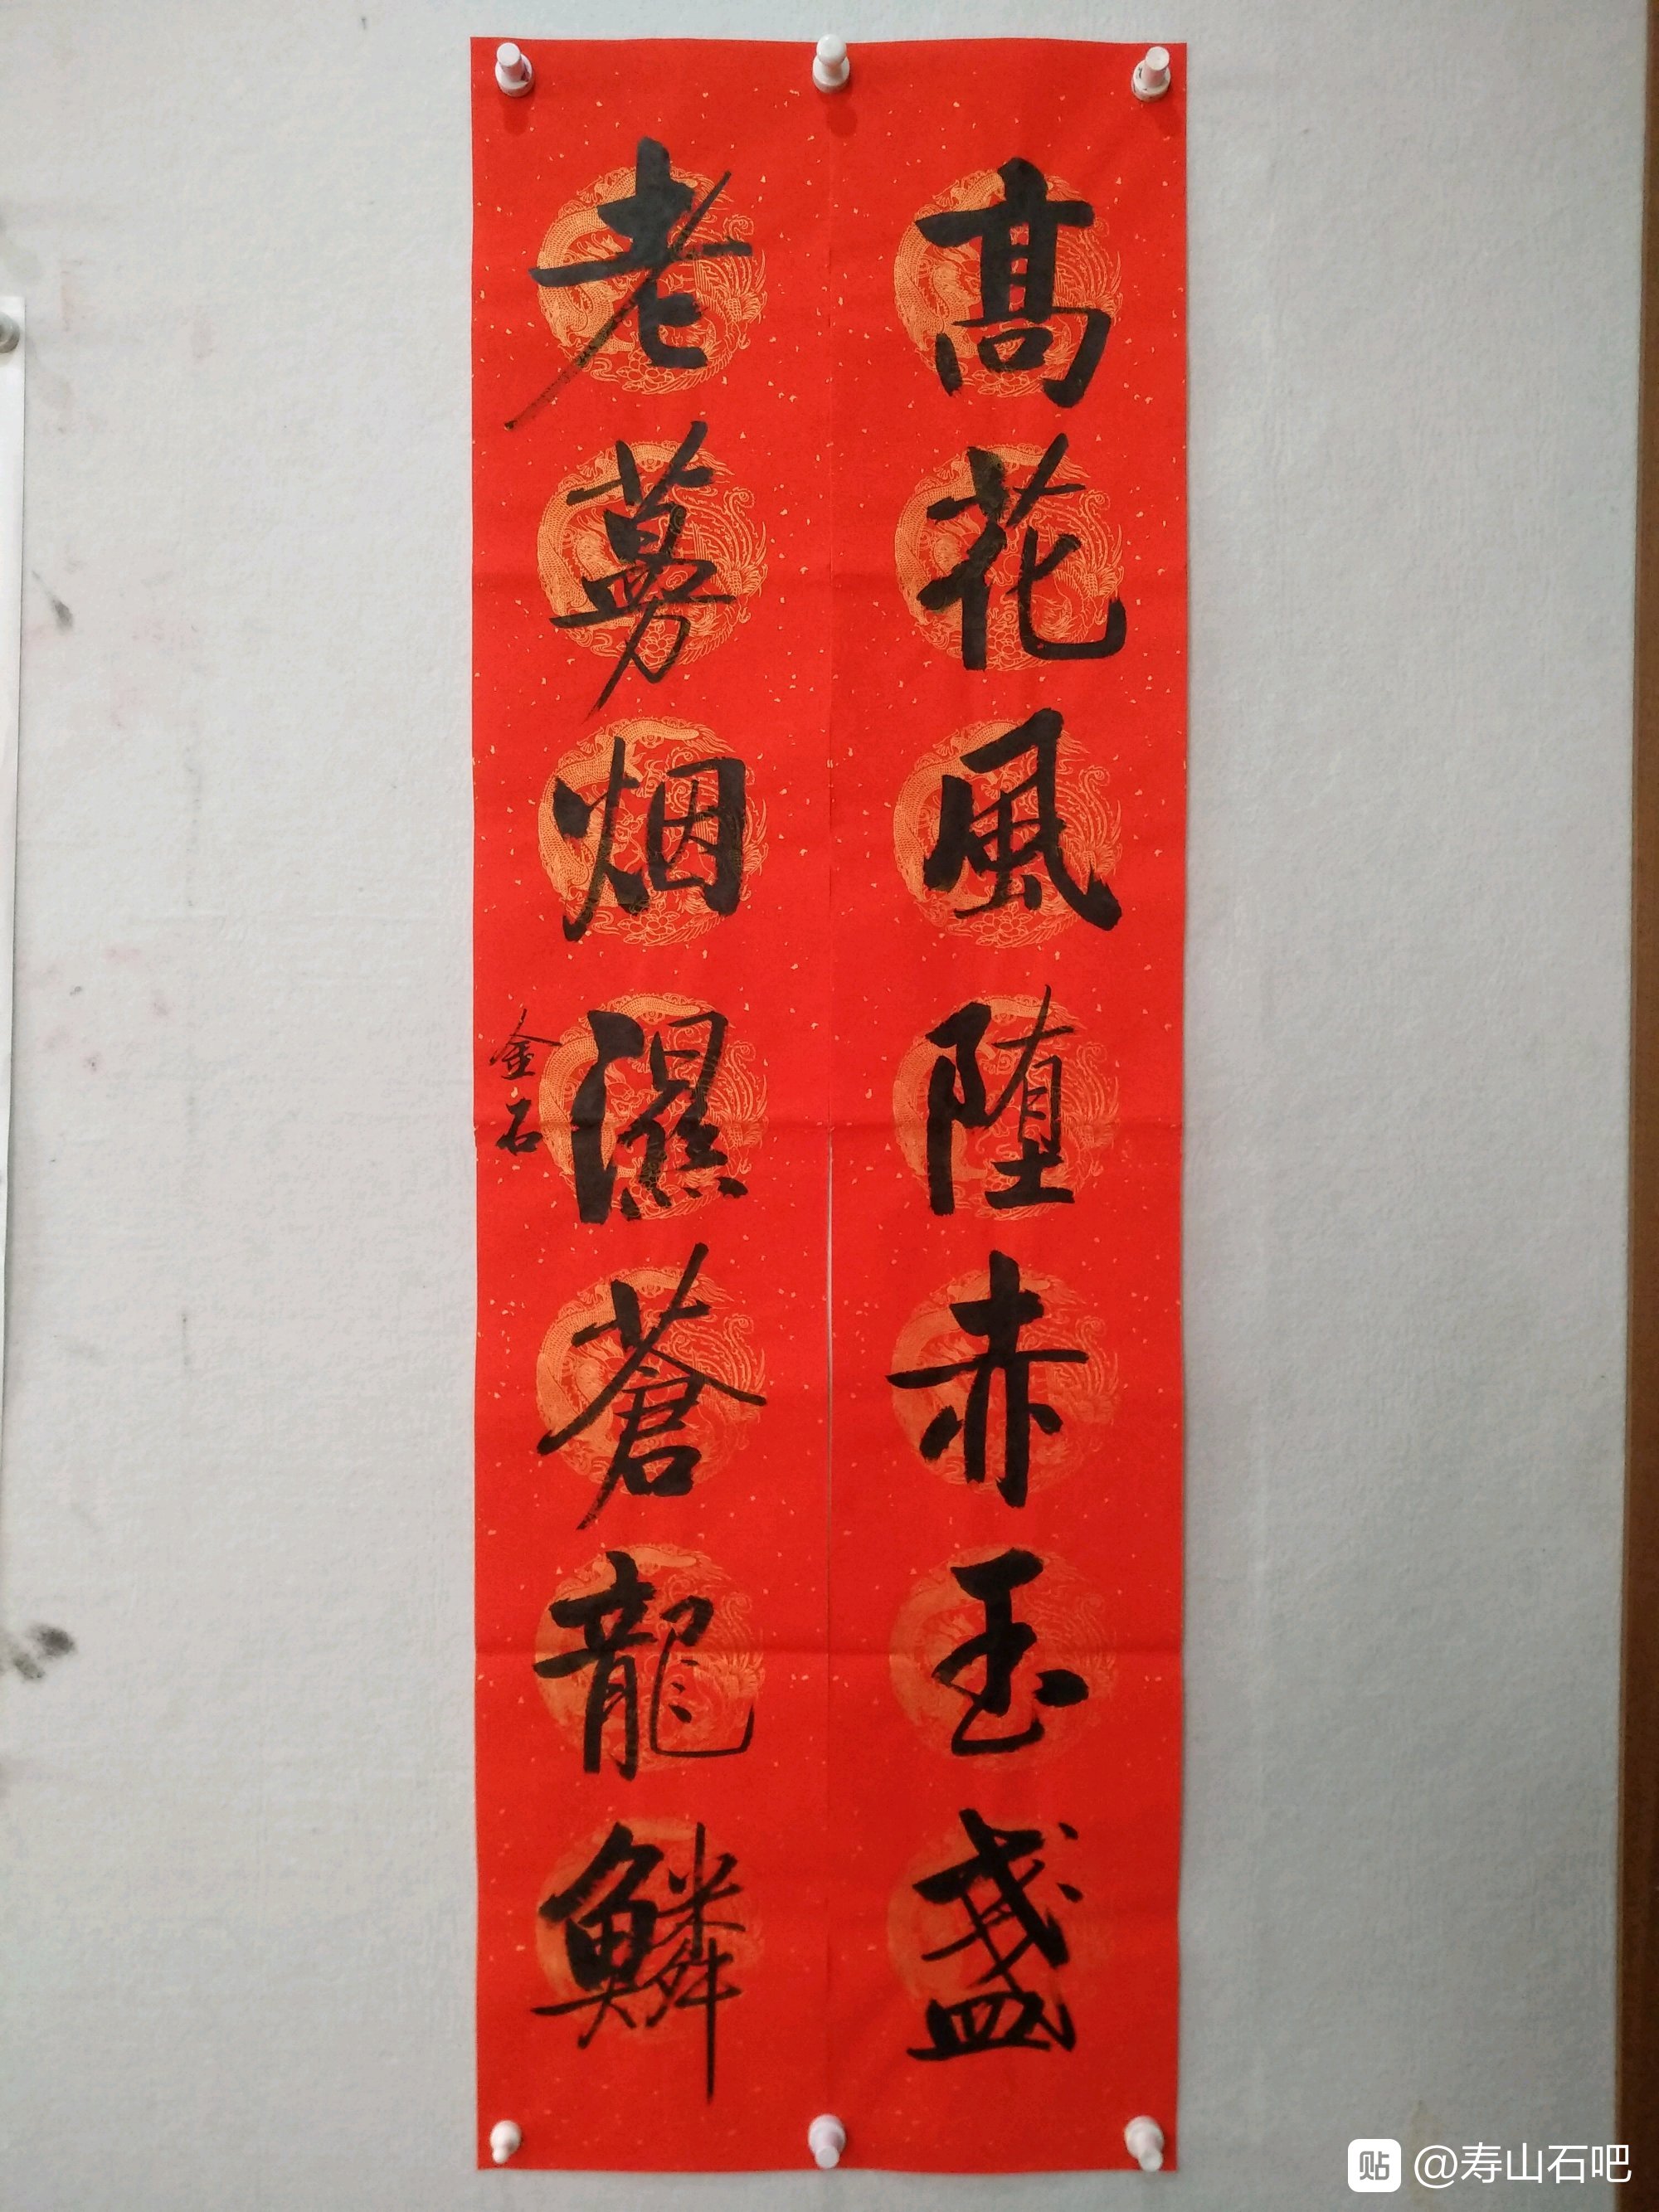 高花風堕赤玉盏
老蔓烟濕蒼龍鱗
金石
贴 @寿山石吧